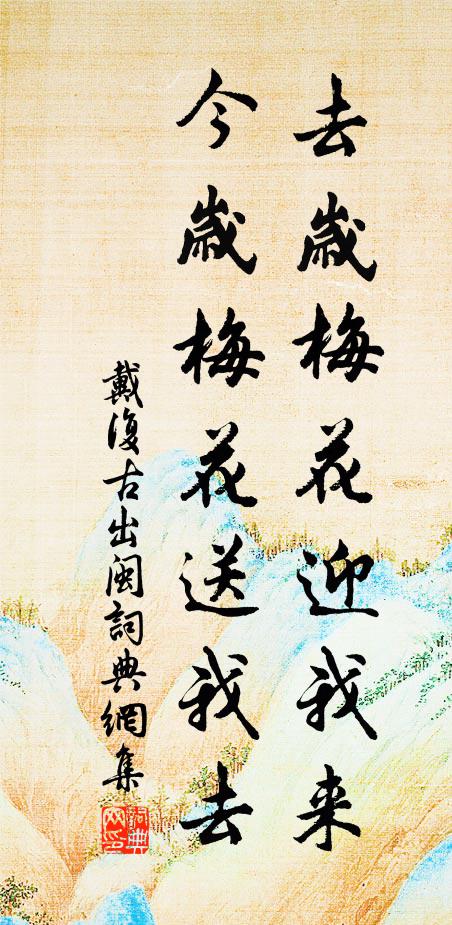 去歳梅花迎我来
今歳梅花送我去
戴復古出閩詞典網集
詞典